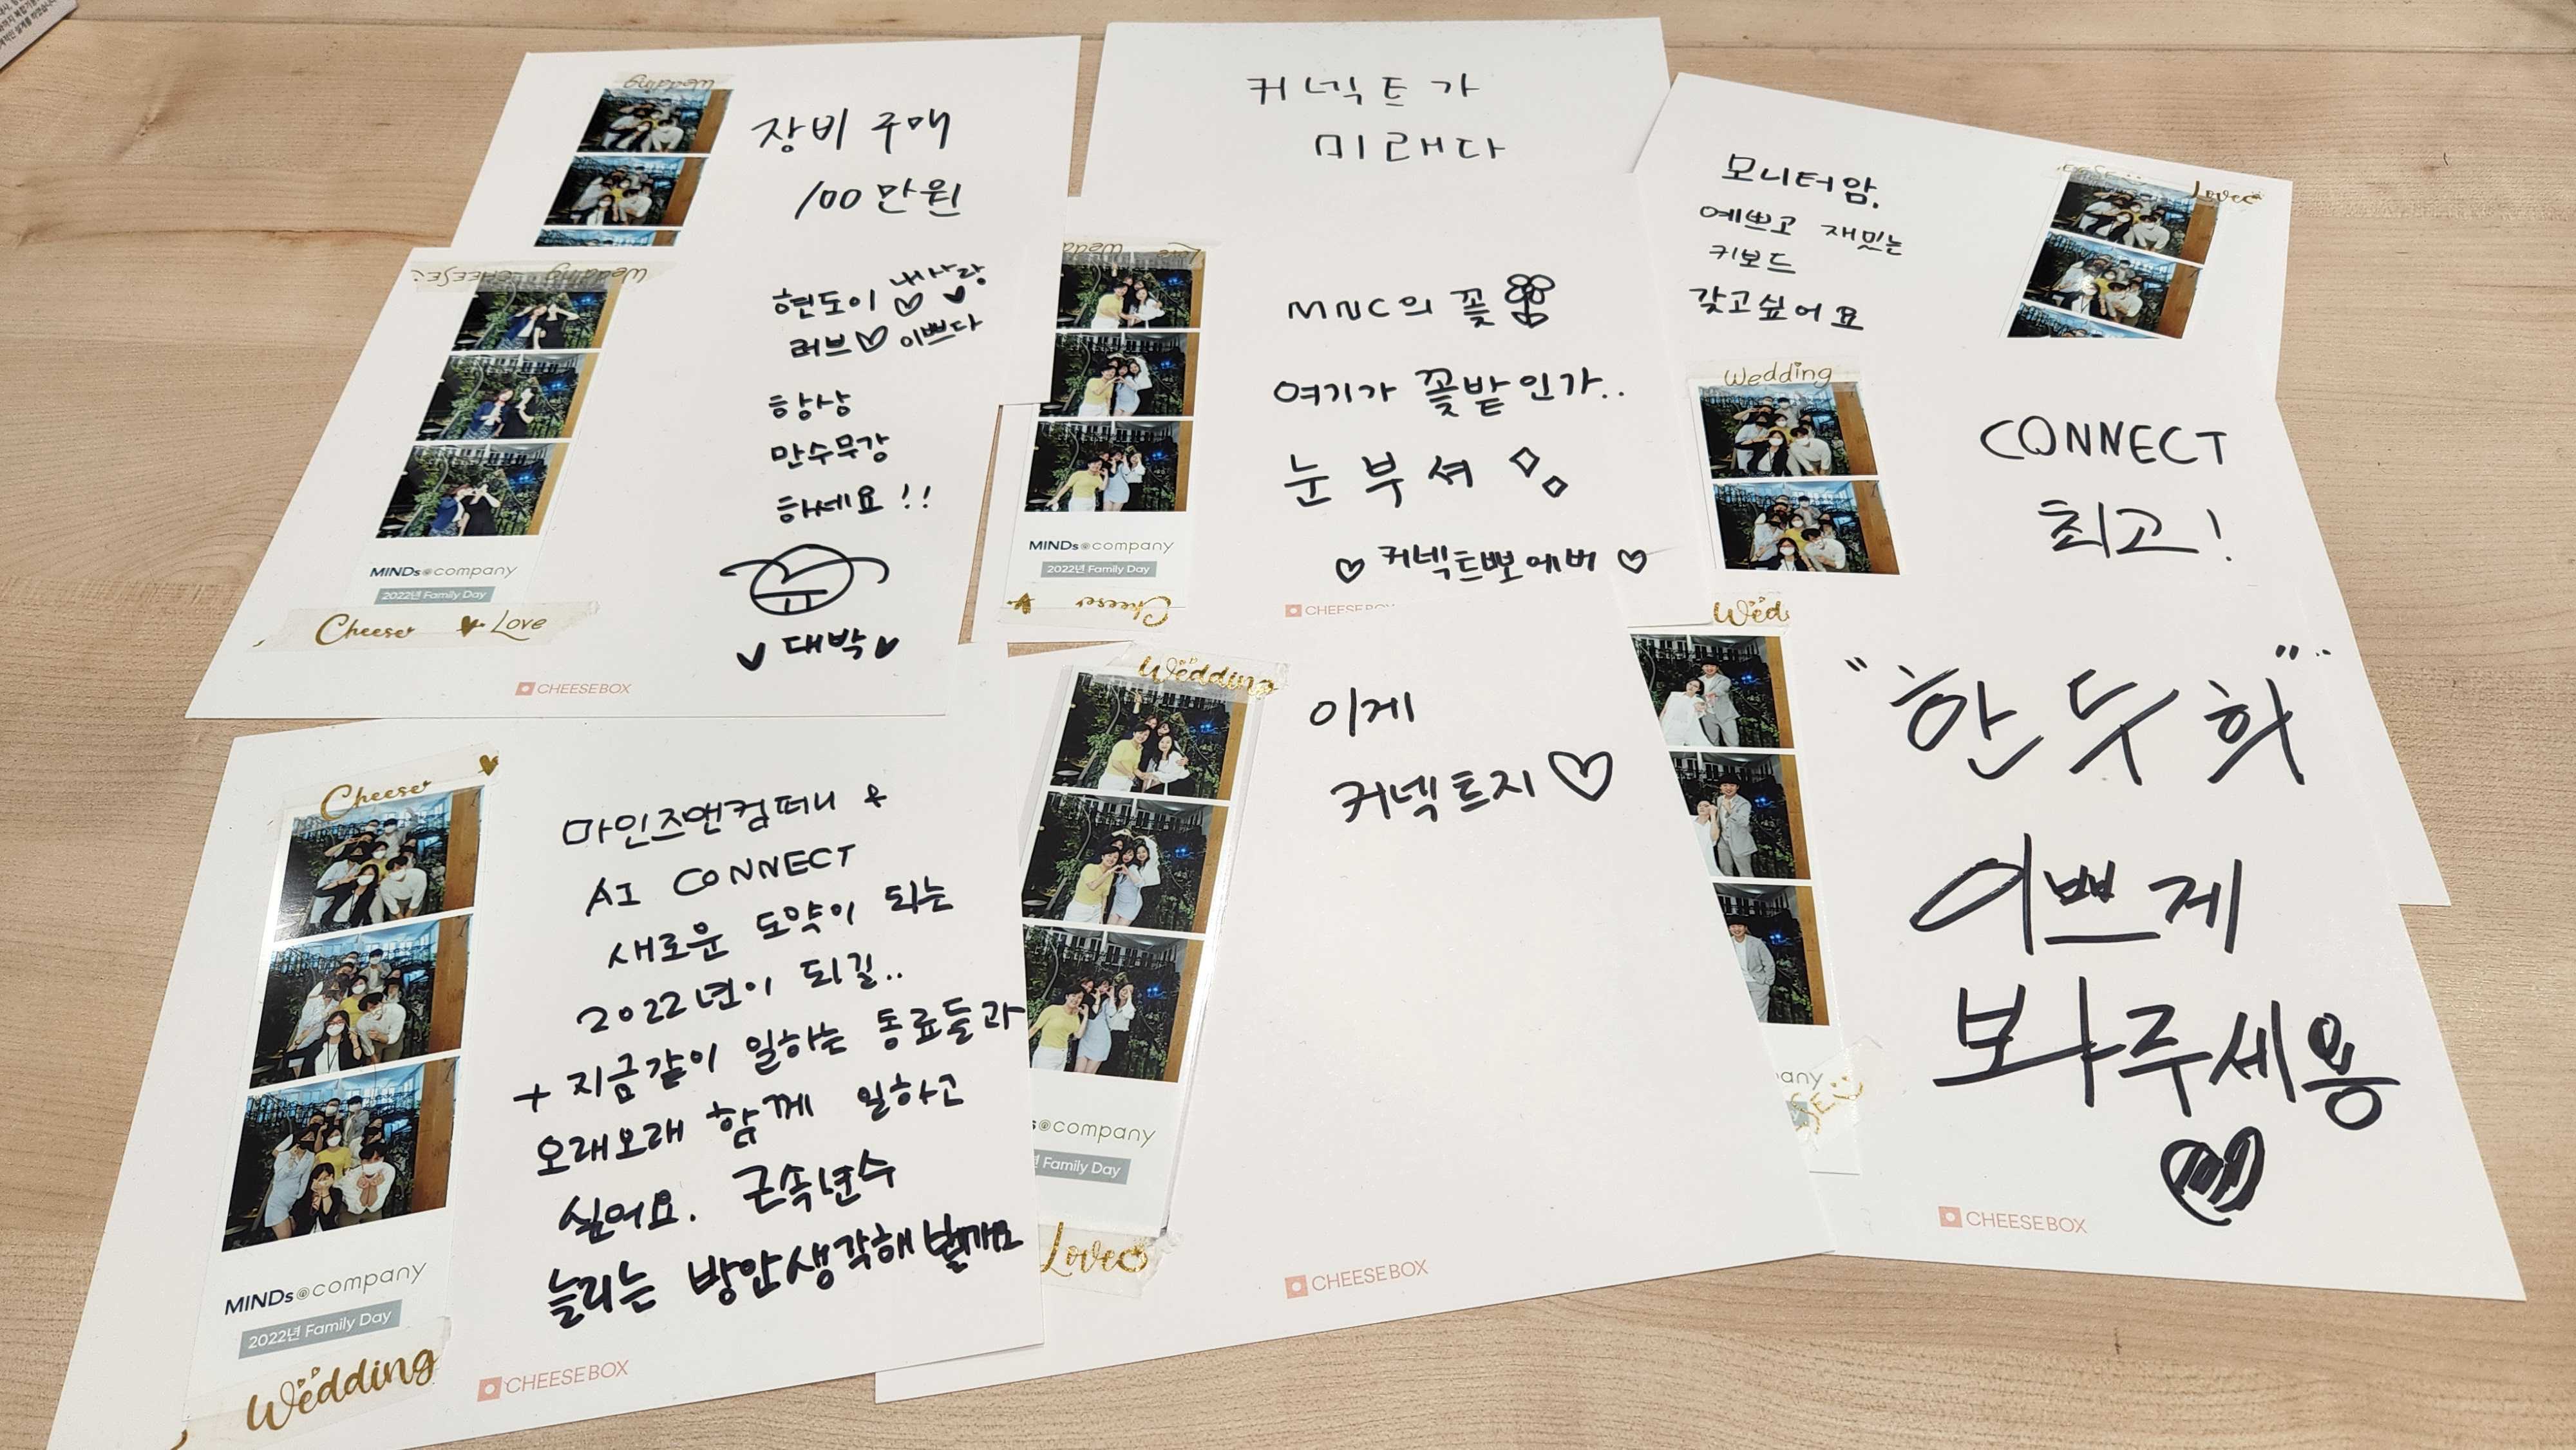 Wedding
장비 구매
100만원
커넥트가
미래다
모니터암.
예쁘고 재밌는
키보드
갖고싶어요
Love
Wedding CHEESE
현도이 ♡ 내사랑
러브♡ 이쁘다
항상
만수무강
하세요!!
대박
MINDs@company
2022년 Family Day
Cheese Love
CHEESEBOX
MNC의 꽃
여기가 꽃밭인가..
눈부셔
♡ 커넥트뽀에버 ♡
MINDs@company
2022년 Family Day
Cheese
CHEESEBOX
Wedding
CONNECT
최고!
Cheese
마인즈앤컴퍼니 &
AI CONNECT
새로운 도약이 되는
2022년이 되길..
+ 지금같이 일하는 동료들과
오래오래 함께 일하고
싶어요. 근속년수
늘리는 방안생각해볼게요
MINDs@company
2022년 Family Day
Wedding
CHEESEBOX
Wedding
이게
커넥트지♡
company
Family Day
Love
CHEESEBOX
"한두희"
이쁘게
봐주세용
CHEESEBOX